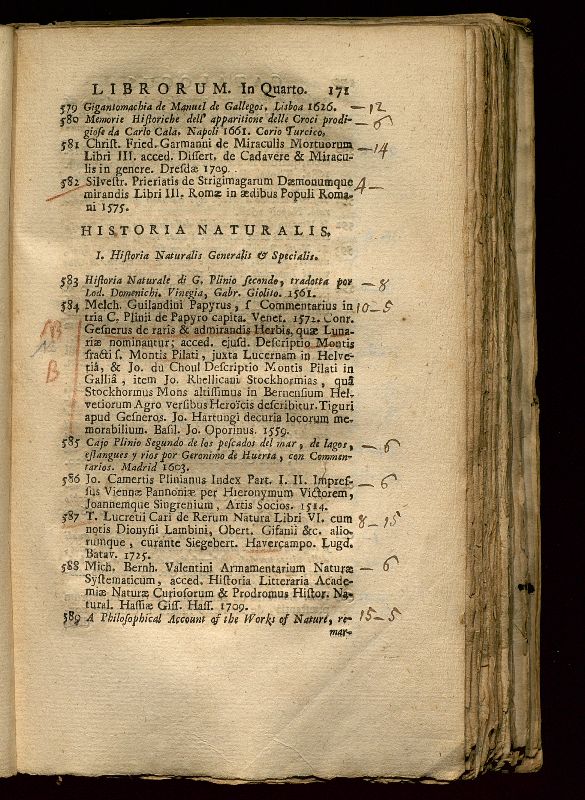 LIBRORUM. In Quarto. 171
579 Gigantomachia de Manuel de Gallegos, Lisboa 1626. — 12
580 Memorie Hiſtoriche dell' apparitione delle Croci prodi- — 6
gioſe da Carlo Cala, Napoli 1661. Corio Turcico,
581 Chriſt. Fried. Garmanni de Miraculis Mortuorum — 14
Libri III. acced. Diſſert. de Cadavere & Miracu-
lis in genere. Dreſdæ 1709.
582 Silveſtr. Prieriatis de Strigimagarum Dæmonumque 4 —
mirandis Libri III. Romæ in ædibus Populi Roma-
ni 1575.
HISTORIA NATURALIS.
I. Hiſtoria Naturalis Generalis & Specialis.
583 Hiſtoria Naturale di G. Plinio ſecondo, tradotta per — 8
Lod. Domenichi. Vinegia, Gabr. Giolito. 1561.
584 Melch. Guilandini Papyrus, ſ Commentarius in 10 — 5
tria C. Plinii de Papyro capita. Venet. 1572. Conr.
Geſnerus de raris & admirandis Herbis, quæ Luna-
riæ nominantur; acced. ejuſd. Deſcriptio Montis
fracti ſ. Montis Pilati, juxta Lucernam in Helve-
tiâ, & Jo. du Choul Deſcriptio Montis Pilati in
Galliâ, item Jo. Rhellicani Stockhornias, quâ
Stockhornus Mons altiſſimus in Bernenſium Hel-
vetiorum Agro verſibus Heroïcis deſcribitur. Tiguri
apud Geſneros. Jo. Hartungi decuria locorum me-
morabilium. Baſil. Jo. Oporinus. 1559.
B
585 Cajo Plinio Segundo de los peſcados del mar, de lagos, — 6
eſtangues y rios por Geronimo de Huerta, con Commen-
tarios. Madrid 1603.
586 Jo. Camertis Plinianus Index Part. I. II. Impreſ- — 6
ſus Viennæ Pannoniæ per Hieronymum Victorem,
Joannemque Singrenium, Artis Socios. 1514.
587 T. Lucretii Cari de Rerum Natura Libri VI. cum 8 — 15
notis Dionyſii Lambini, Obert. Gifanii &c. alio-
rumque, curante Siegebert. Havercampo. Lugd.
Batav. 1725.
588 Mich. Bernh. Valentini Armamentarium Naturæ — 6
Syſtematicum, acced. Hiſtoria Litteraria Acade-
miæ Naturæ Curioſorum & Prodromus Hiſtor. Na-
tural. Haſſiæ Giſſ. Haſſ. 1709.
589 A Philoſophical Account of the Works of Nature, re- 15 — 5
mar-